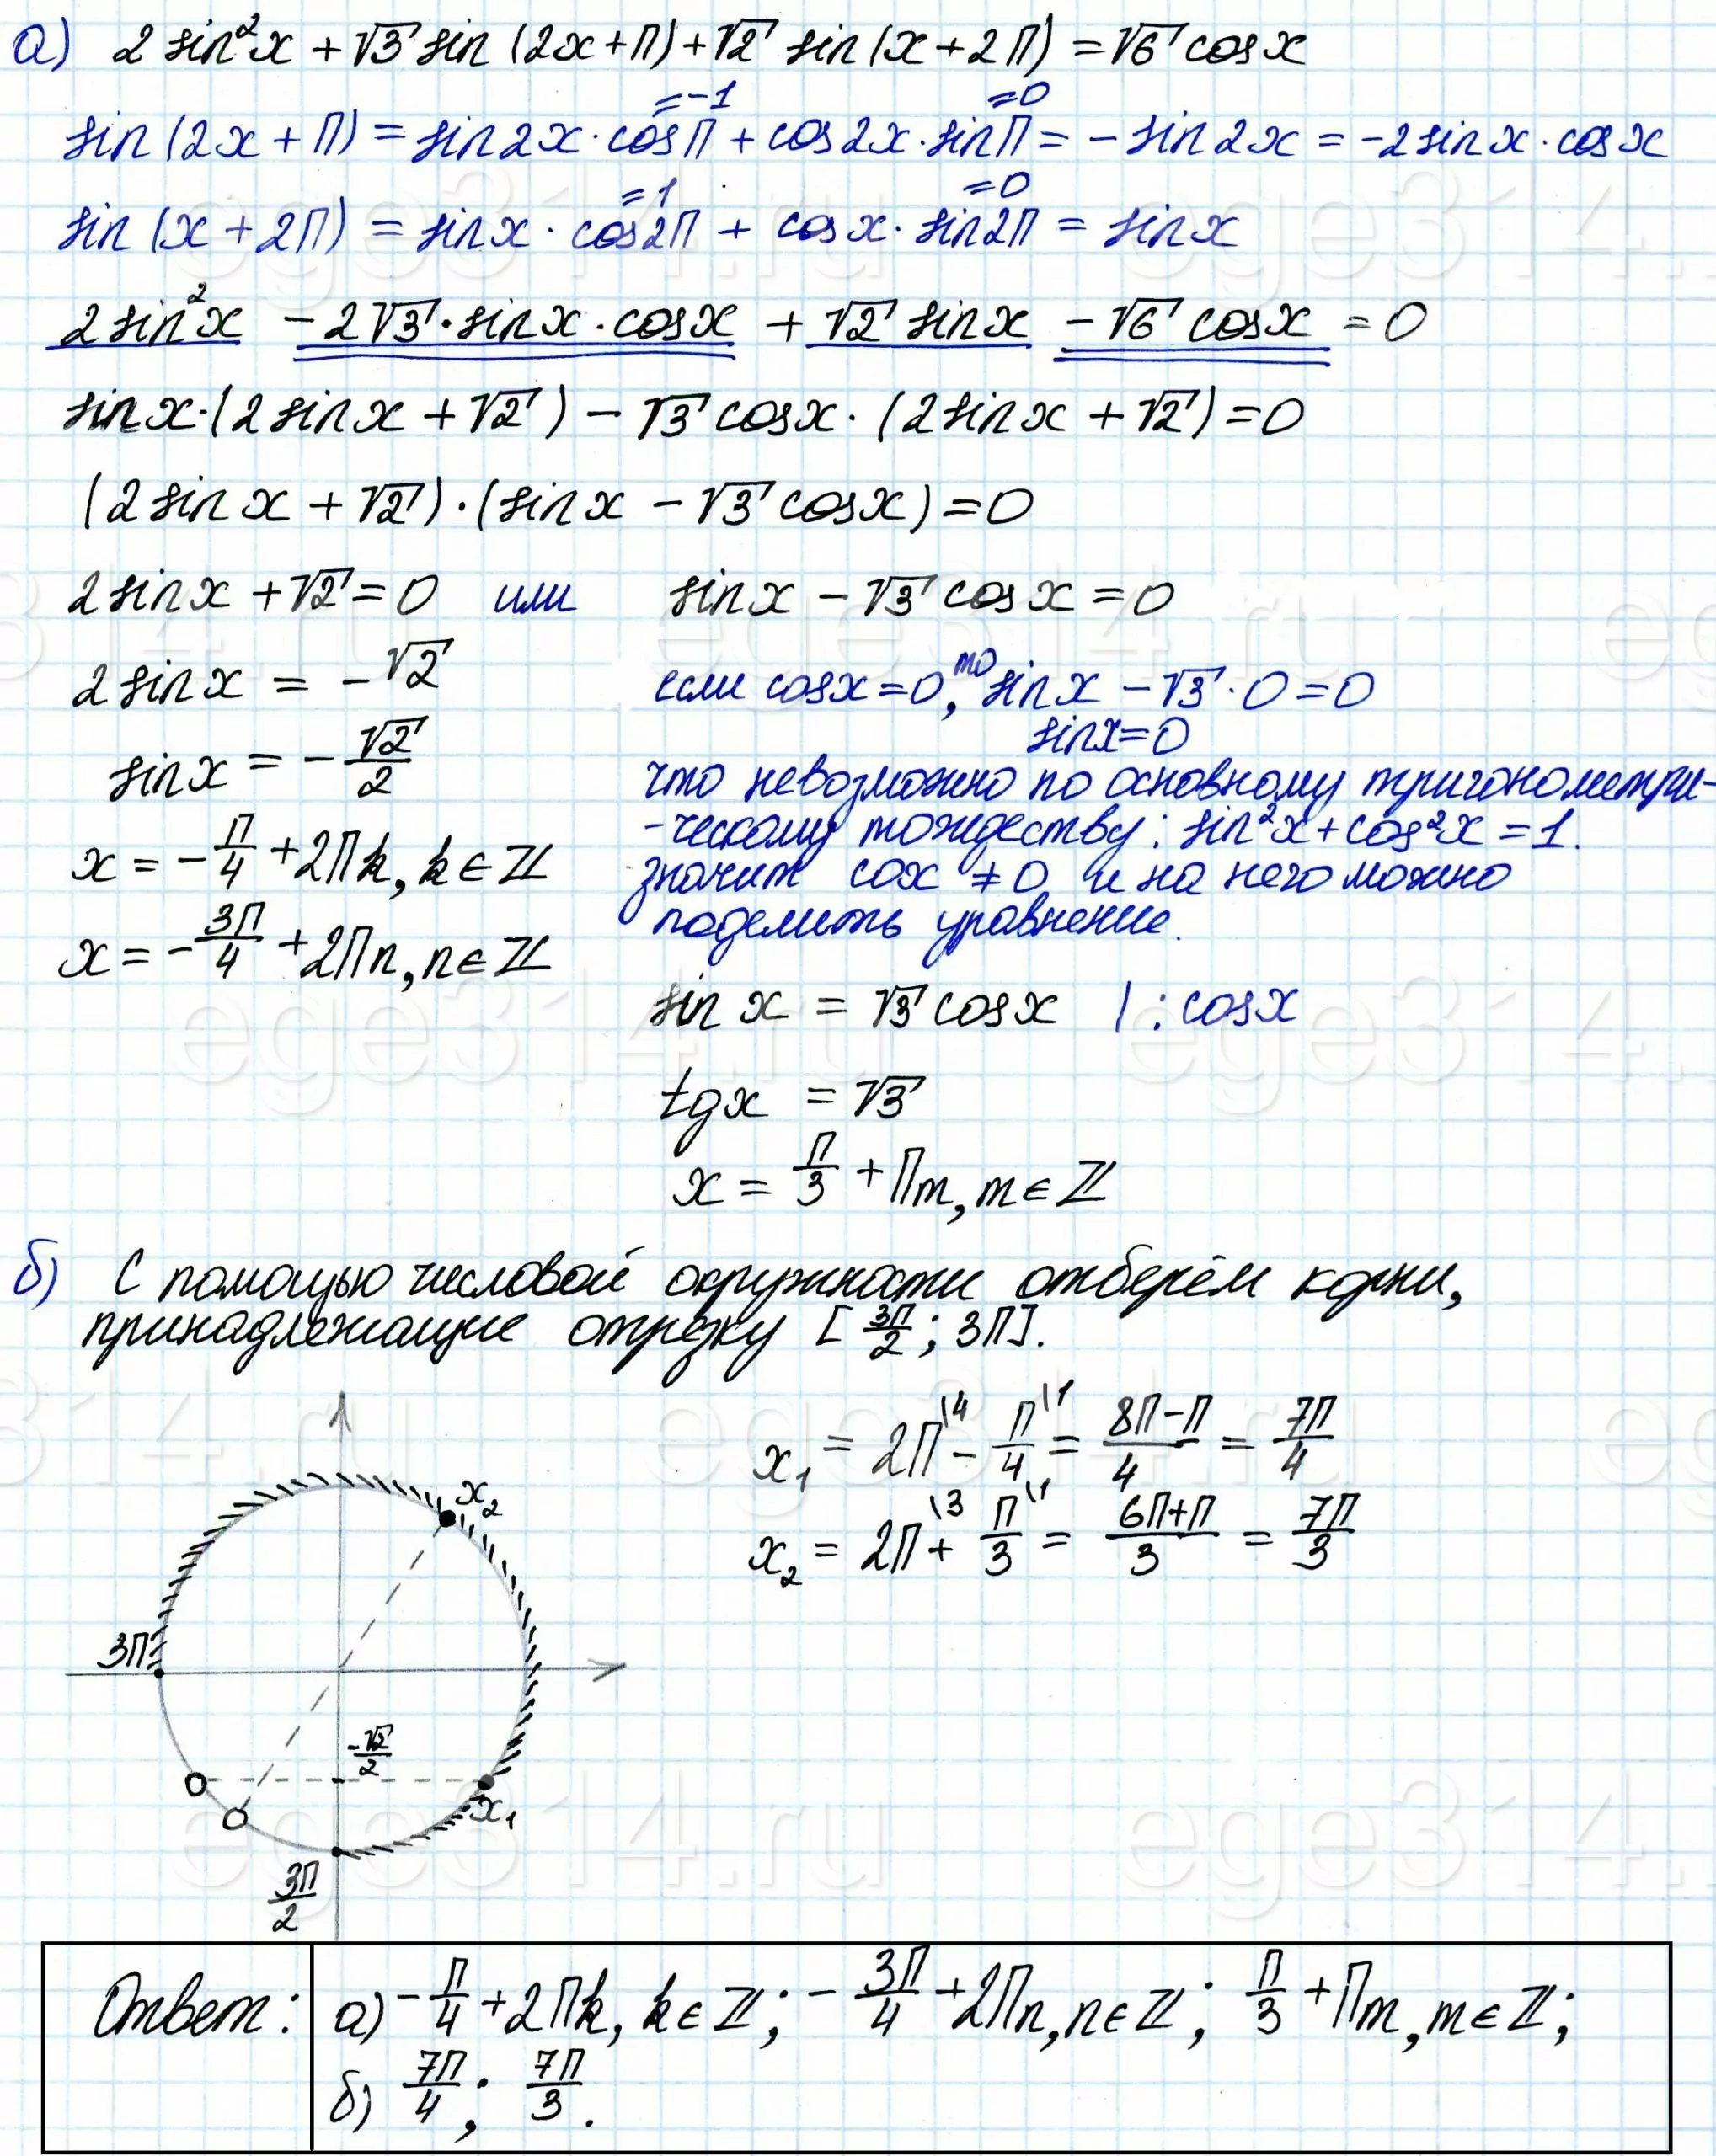 а) 2 sin²x + √3 sin (2x+π) + √2 sin (x+2π) = √6 cosx
sin (2x + π) = sin2x · cosπ + cos2x · sinπ = - sin2x = -2sinx · cosx
=-1 =0
sin (x + 2π) = sinx · cos2π + cosx · sin2π = sinx
=1 =0
2sin²x - 2√3 · sinx · cosx + √2 sinx - √6 cosx = 0
sinx·(2sinx + √2) - √3 cosx · (2sinx + √2) = 0
(2sinx + √2) · (sinx - √3 cosx) = 0
2sinx + √2 = 0 или sinx - √3 cosx = 0
2sinx = -√2
если cosx = 0, то sinx - √3 · 0 = 0
sinx = 0
sinx = -√2/2
что невозможно по основному тригонометри-
-ческому тождеству: sin²x + cos²x = 1.
x = -π/4 + 2πk, k∈ℤ
значит cosx ≠ 0 и на него можно
поделить уравнение.
x = -3π/4 + 2πn, n∈ℤ
sinx = √3 cosx | : cosx
tgx = √3
x = π/3 + πm, m∈ℤ
б) С помощью числовой окружности отберём корни,
принадлежащие отрезку [3π/2; 3π].
x₁ = 2π\4 - π/4\1 = (8π-π)/4 = 7π/4
x₂ = 2π\3 + π/3\1 = (6π+π)/3 = 7π/3
x₂
3π
-√2/2
x₁
3π/2
Ответ: а) -π/4 + 2πk, k∈ℤ; -3π/4 + 2πn, n∈ℤ; π/3 + πm, m∈ℤ;
б) 7π/4; 7π/3.
ege314.ru